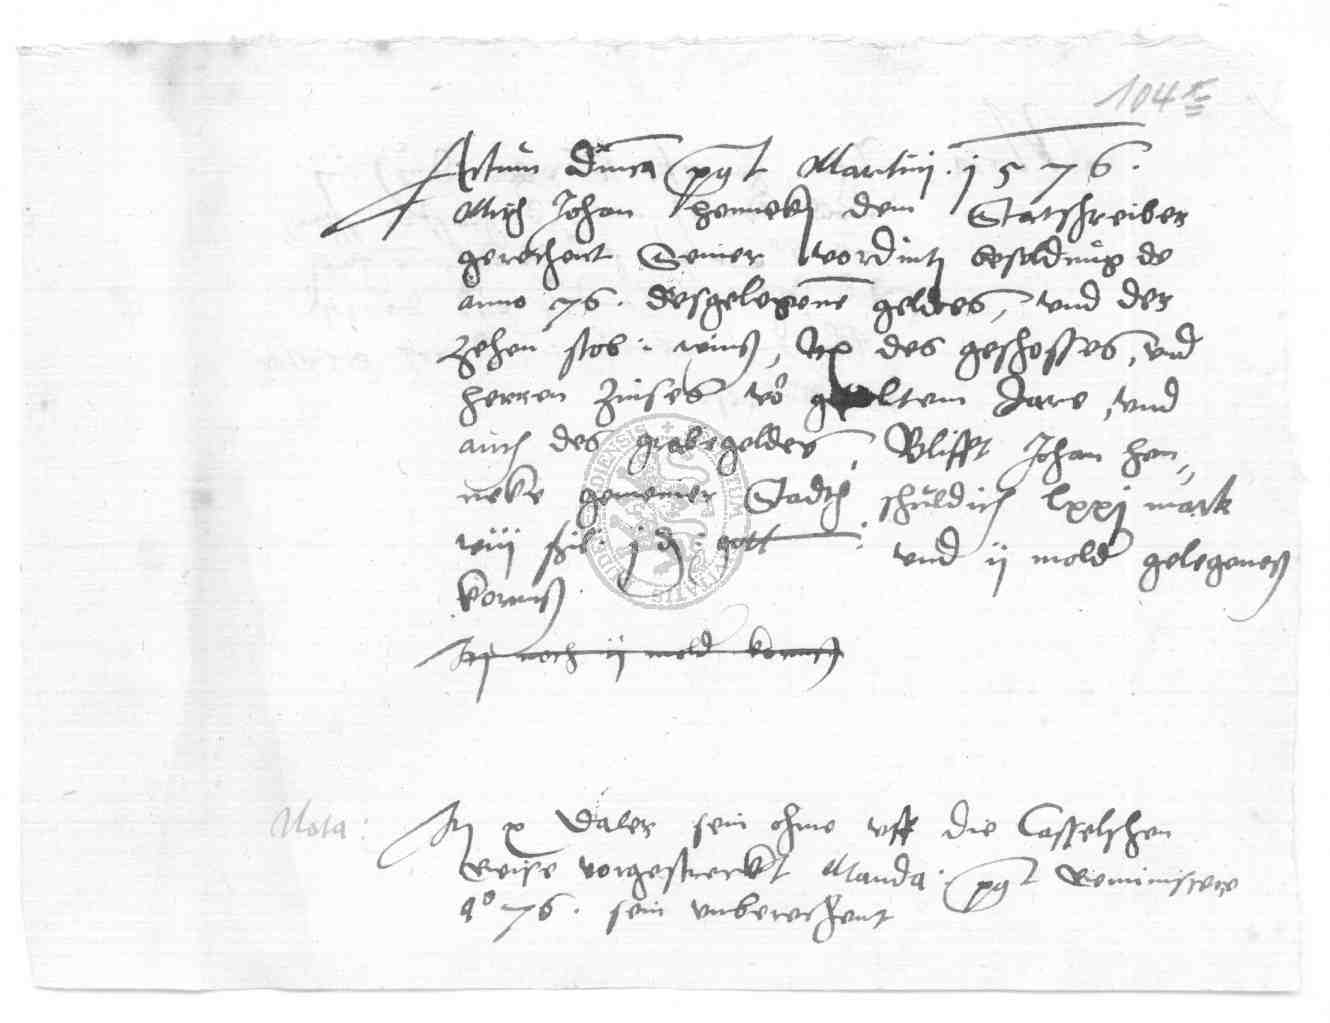 104r
Actum dmca post Martini. j576.
Mith Johan henneken dem Statschreiber
gerechent Seiner vordintz besoldung de
anno 76. desgelegene geldes, vnd der
zehen stob. weins, des geschosses, vnd
herren Zinses vo geoltem Jare, vnd
auch des grabegeldes, Blifft Johan hen,,
neke gemeiner Stadth schuldich lxxj mark
viij j d gott vnd ij mold gelegenes
korns
noch ij mold korns
Nota: x Daler sein ohme vff die Casselschen
Reise vorgestreckt Manda. post Reminiscere
ao 76. sein vnberechent